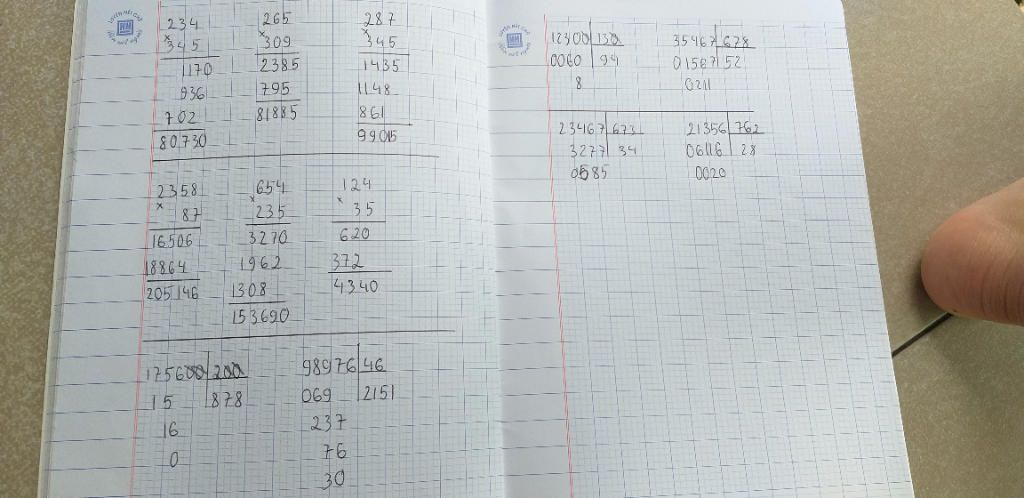 234 265 287
× 345 × 309 × 345
1170 2385 1435
936 795 1148
702 81885 861
80730 99015
2358 654 124
× 87 × 235 × 35
16506 3270 620
18864 1962 372
205146 1308 4340
153690
175600 200 98976 46
15 878 069 2151
16 237
0 76
30
12300 130 35467 678
0060 94 01567 52
8 0211
23467 673 21356 762
3277 34 06116 28
0585 0020